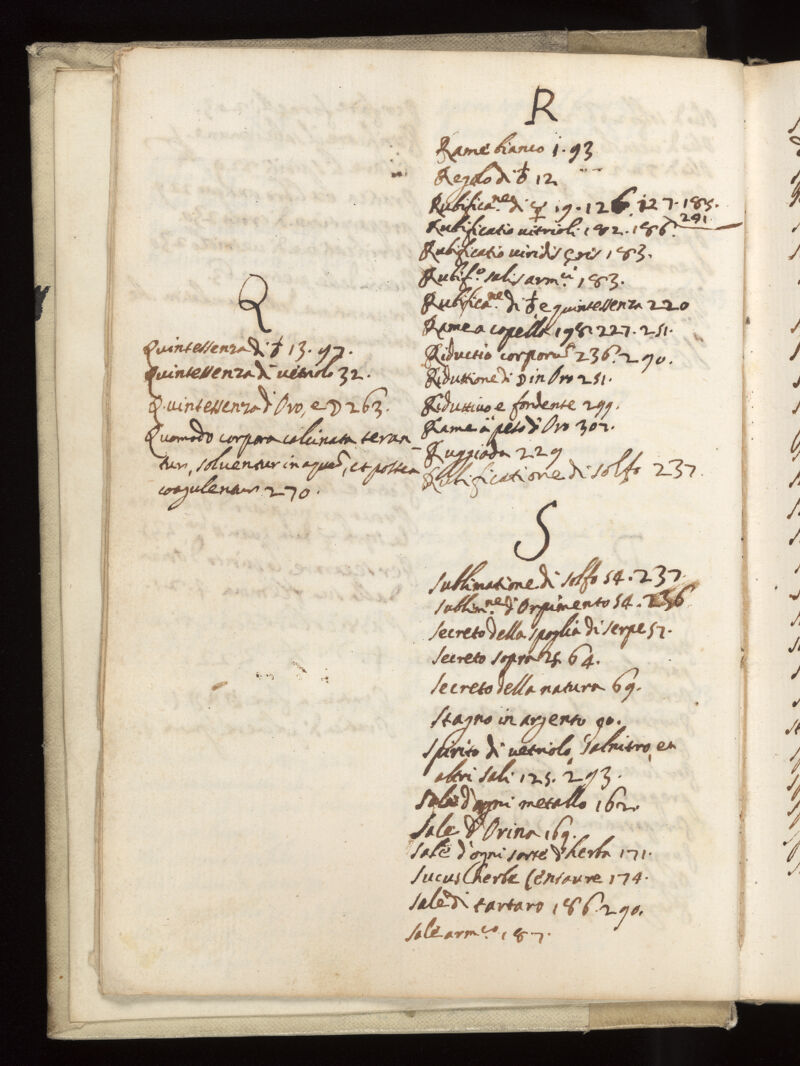 Q
Quintessenza di ♄ 13. 97.
Quintessenza di vetriolo 32.
Quintessenza d'Oro, e ☽ 263.
Quomodo corpora calcinata teran-
tur, solventur in aquā, et postea
coagulentur 270.
R
Rame bianco 1. 93
Regolo di ♄ 12
Rubifica.ne di ☿ 19. 126. 127. 185.
291
Rubificatio vitrioli. 182. 186.
Rubificatio viridis æris 183.
Rubif.o salis arm.ci 183.
Rubifica.ne di ♄ e quintessenza 220
Rame a copella 198. 227. 251.
Riductio corporū 236. 290.
Riduttione di ☽ in Oro 251.
Riduttivo e fondente 299.
Rame à peso d'Oro 302.
Ruggiada 229
Rubificatione di solfo 237.
S
Sublimatione di solfo 54. 237.
Sublim.ne d'Orpimento 54. 236
Secreto della spoglia di serpe 57.
Secreto sopra ♃ 64.
Secreto della natura 69.
Stagno in argento 90.
Spirito di vetriolo, Salnitro, et
altri sali 125. 293.
Sale d'ogni metallo 162.
Sale d'Orina 169.
Sale d'ogni sorte d'herba 171.
Sucus herbe Censaure 174.
Sale di tartaro 186. 290.
Sale arm.co 187.